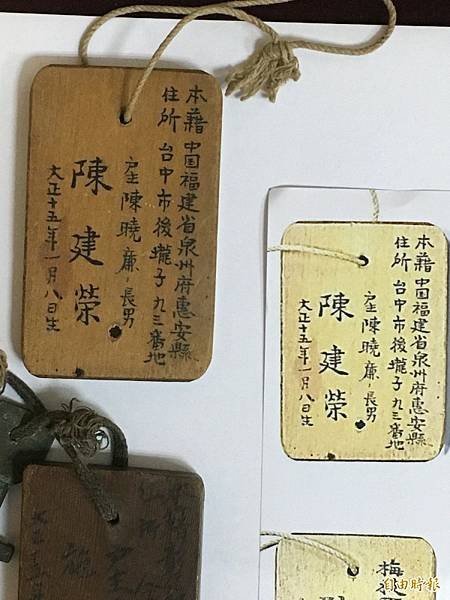 本藉 中国福建省泉州府惠安縣
住所 台中市後壠子九三番地
戶陳曉廉,長男
陳建榮
大正十五年一月八日生
本藉 中国福建省泉州府惠安縣
住所 台中市後壠子九三番地
戶陳曉廉,長男
陳建榮
大正十五年一月八日生
梅
自由時報